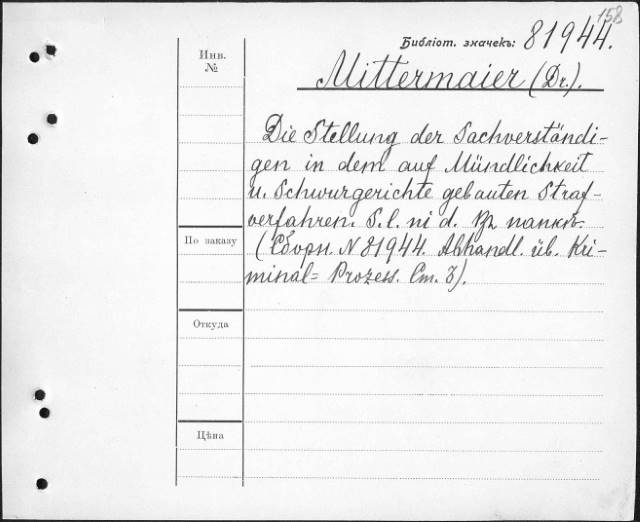 158
Библіот. значекъ: 81944.
Инв.
№
Mittermaier (Dr.).
Die Stellung der Sachverständi-
gen in dem auf Mündlichkeit
u. Schwurgerichte gebauten Straf-
verfahren. S. l. ni d. въ папкѣ.
По заказу
(Сборн. N 81944. Abhandl. üb. Kri-
minal= Prozess. Ст. 3).
Откуда
Цѣна